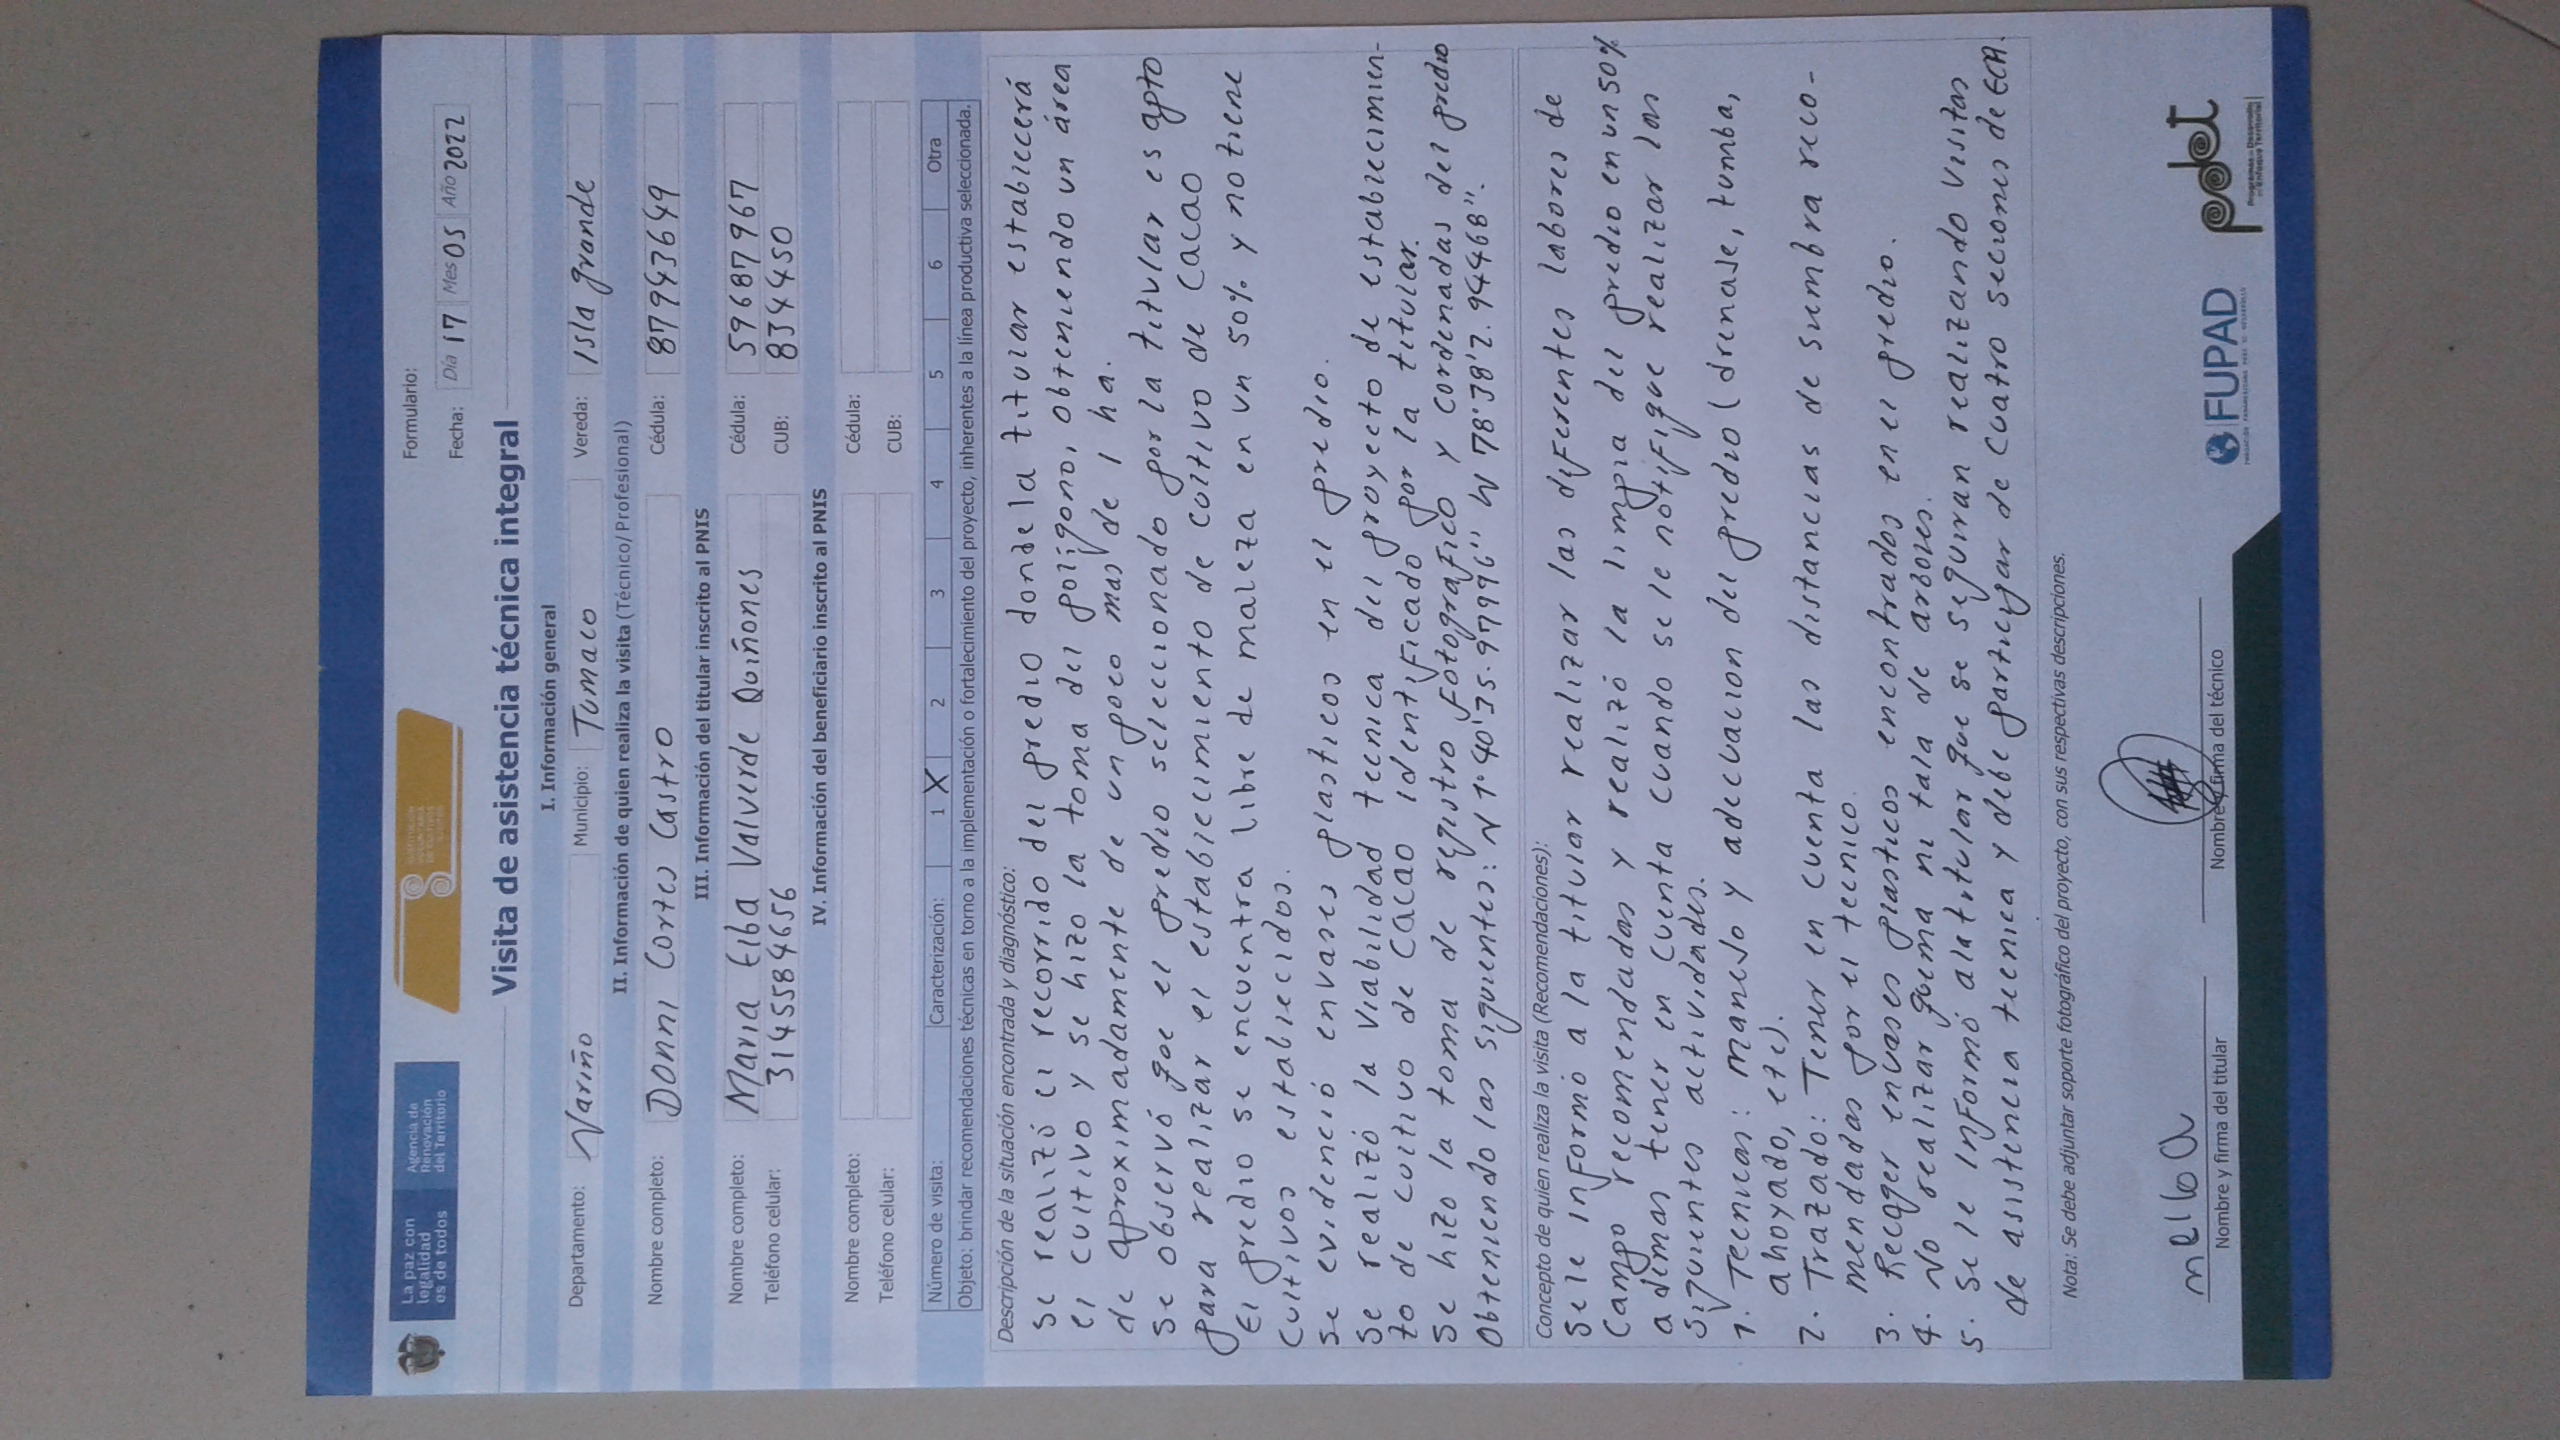 La paz con
legalidad
es de todos
Agencia de
Renovación
del Territorio
Formulario:
Fecha: Día 17 Mes 05 Año 2022
Visita de asistencia técnica integral
I. Información general
Departamento: Nariño Municipio: Tumaco Vereda: Isla grande
II. Información de quien realiza la visita (Técnico/Profesional)
Nombre completo: Donni Cortes Castro Cédula: 87943649
III. Información del titular inscrito al PNIS
Nombre completo: Maria Elba Valverde Quiñones Cédula: 59687967
Teléfono celular: 3145584656 CUB: 834450
IV. Información del beneficiario inscrito al PNIS
Nombre completo: Cédula:
Teléfono celular: CUB:
Número de visita: Caracterización: 1 X 2 3 4 5 6 Otra
Objeto: brindar recomendaciones técnicas en torno a la implementación o fortalecimiento del proyecto, inherentes a la línea productiva seleccionada.
Descripción de la situación encontrada y diagnóstico:
Se realizó el recorrido del predio donde la titular establecerá
el cultivo y se hizo la toma del polígono, obteniendo un área
de aproximadamente de un poco mas de 1 ha.
Se observó que el predio seleccionado por la titular es apto
para realizar el establecimiento de cultivo de cacao
El predio se encuentra libre de maleza en un 50% y no tiene
cultivos establecidos.
Se evidenció envases plasticos en el predio.
Se realizó la viabilidad tecnica del proyecto de establecimien-
to de cultivo de cacao identificado por la titular.
Se hizo la toma de registro fotografico y cordenadas del predio
Obteniendo las siguientes: N 1°40'35.97996" W 78°38'2.94468".
Concepto de quien realiza la visita (Recomendaciones):
Se le informó a la titular realizar las diferentes labores de
Campo recomendadas y realizó la limpia del predio en un 50%
a demas tener en cuenta cuando se le notifique realizar las
siguientes actividades.
1. Tecnicas: manejo y adecuacion del predio (drenase, tumba,
ahoyado, etc).
2. Trazado: Tener en cuenta las distancias de sumbra reco-
mendadas por el tecnico.
3. Recoger envases plasticos encontrados en el predio.
4. No realizar quema ni tala de arboles.
5. Se le informó ala titular que se seguiran realizando visitas
de asistencia tecnica y debe participar de cuatro secciones de ECA.
Nota: Se debe adjuntar soporte fotográfico del proyecto, con sus respectivas descripciones.
Nombre y firma del titular
Nombre y firma del técnico
FUPAD
pdet
Programas de Desarrollo
con Enfoque Territorial